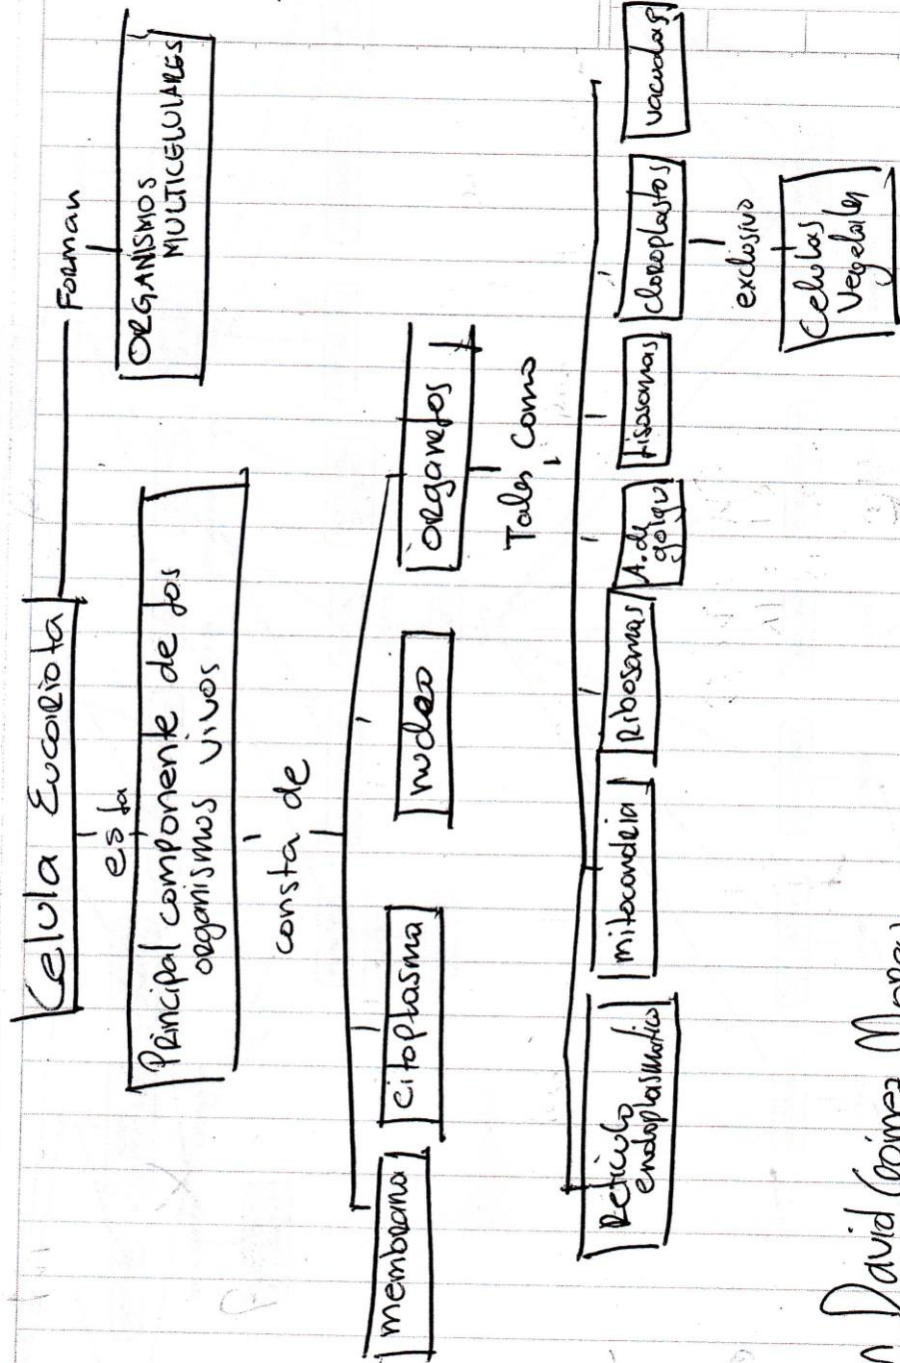 Celula Eucariota
Forman
ORGANISMOS
MULTICELULARES
es la
Principal componente de los
organismos vivos
consta de
membrana
citoplasma
nucleo
organelos
Tales como
Reticulo
endoplasmatico
mitocondria
Ribosomas
A. de
golgi
Lisosomas
cloroplastos
vacuolas
exclusivo
Celulas
Vegetales
David Gómez